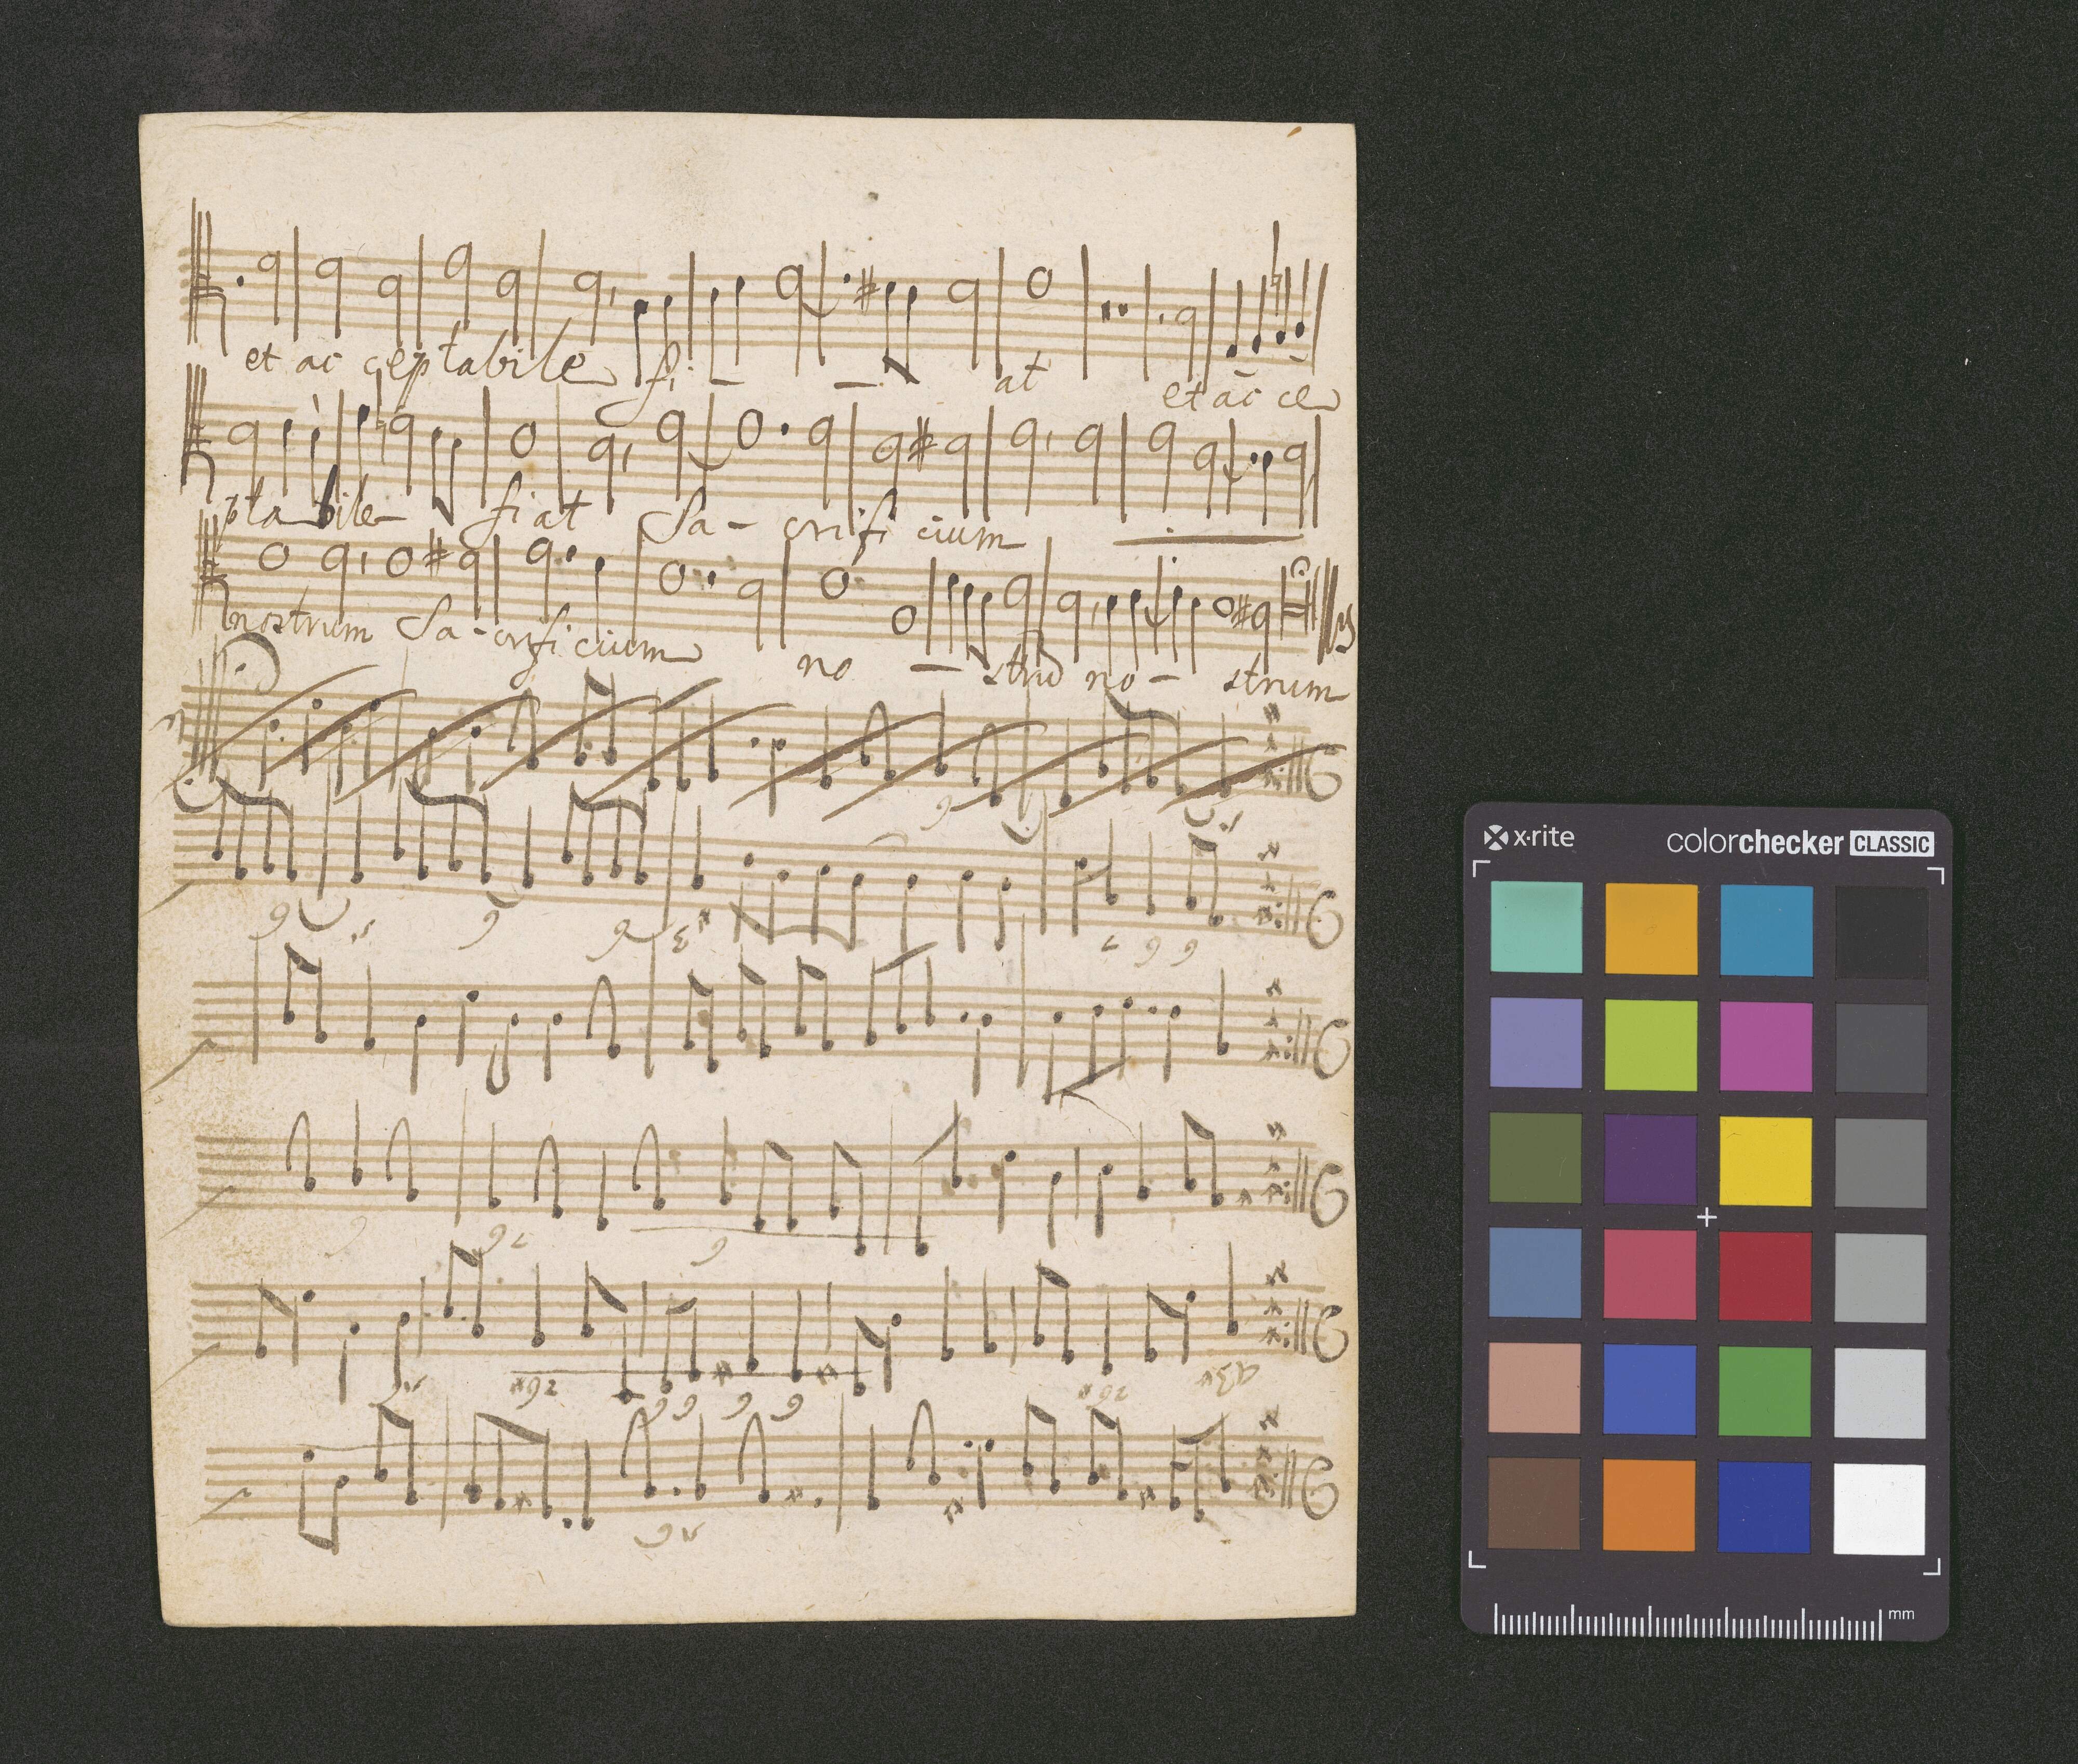 et ac ceptabile fi - - at et ac ce
pta bile fiat Sa - crifi cium
nostrum Sa - crifi cium no - strũ no - strum
x·rite colorchecker CLASSIC
mm